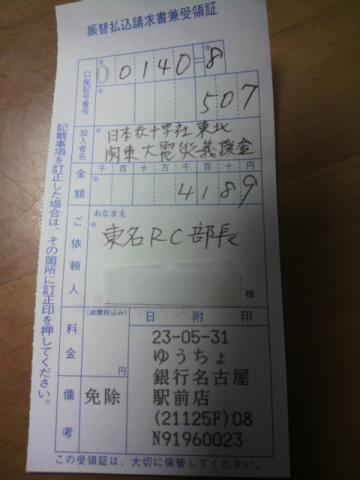 振替払込請求書兼受領証
口座記号番号
00140=8
507
加入者名
日本赤十字社 東北
関東大震災義援金
金額
千百十万千百十円
4189
ご依頼人
おなまえ
東名RC部長
様
料金
(消費税込み)
円
備考
免除
日附印
23-05-31
ゆうちょ
銀行名古屋
駅前店
(21125F)08
N91960023
記載事項を訂正した場合は、その箇所に訂正印を押してください。
この受領証は、大切に保管してください。